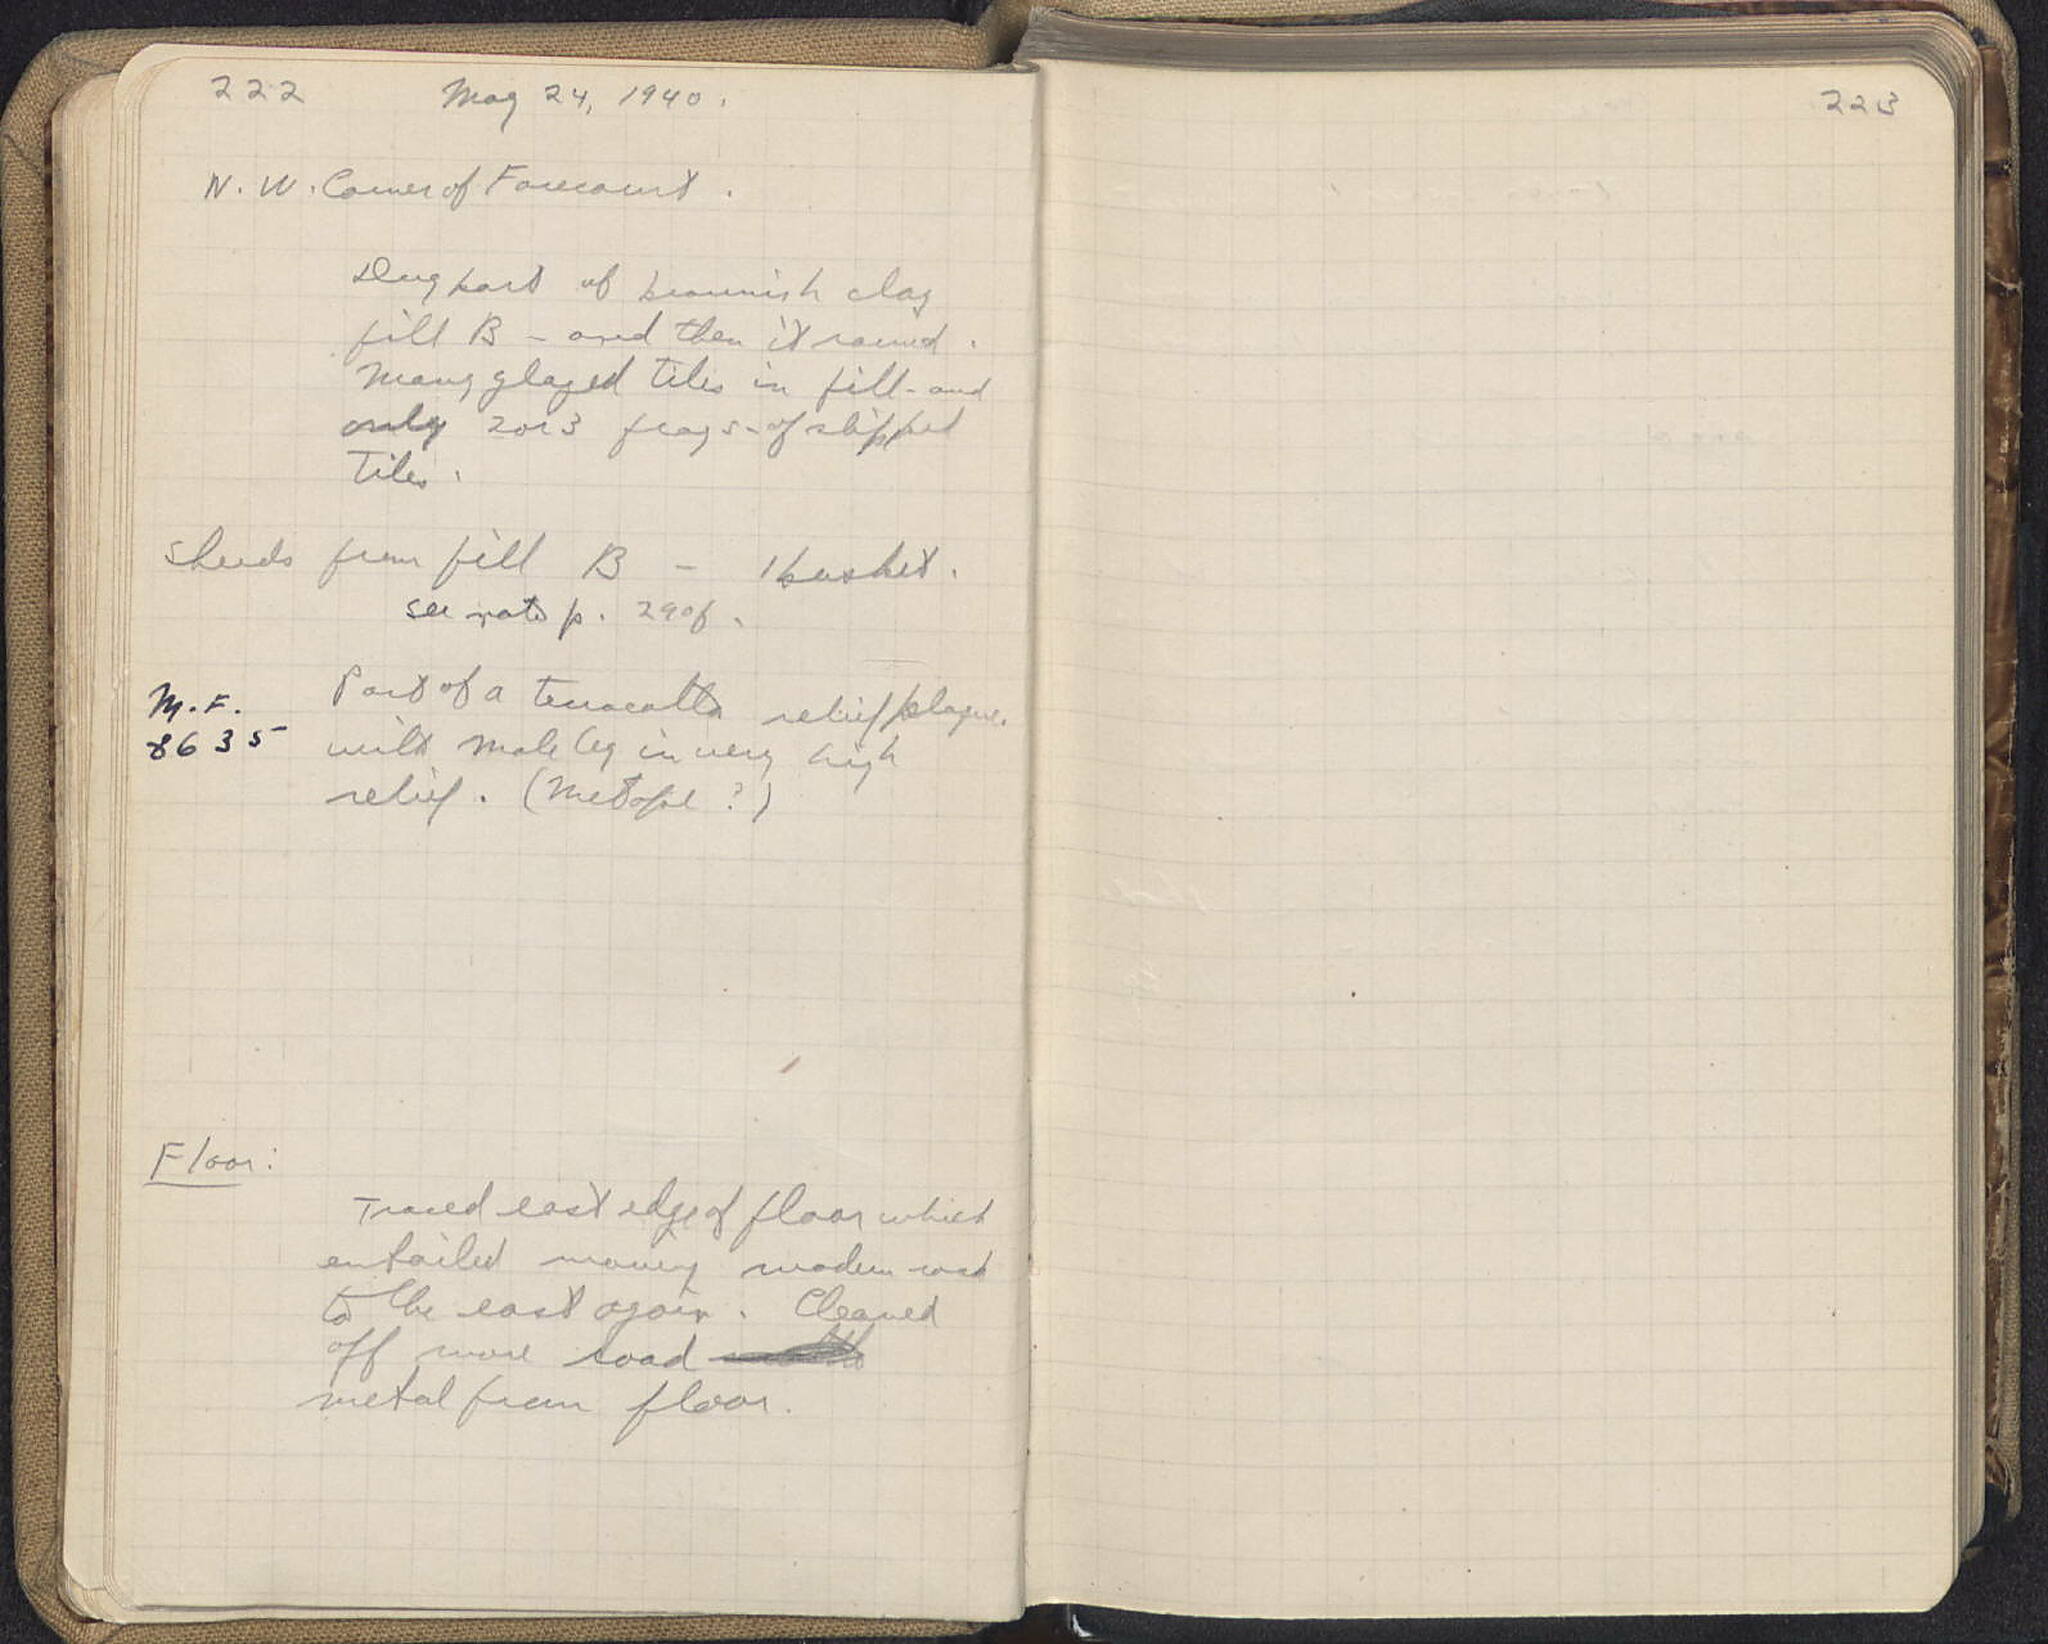 222 May 24, 1940.
N. W. Corner of Forecourt.
Dug part of brownish clay
fill B – and then it rained.
Many glazed tiles in fill – and
only 2 or 3 frags – of slipped
tiles.
Sherds from fill B – 1 basket.
see note p. 290f.
M.F.
8635
Part of a terracotta relief plaque
with male leg in very high
relief. (Metope?)
Floor:
Traced east edge of floor which
entailed moving modern road
to the east again. Cleaned
off more road
metal from floor.
223